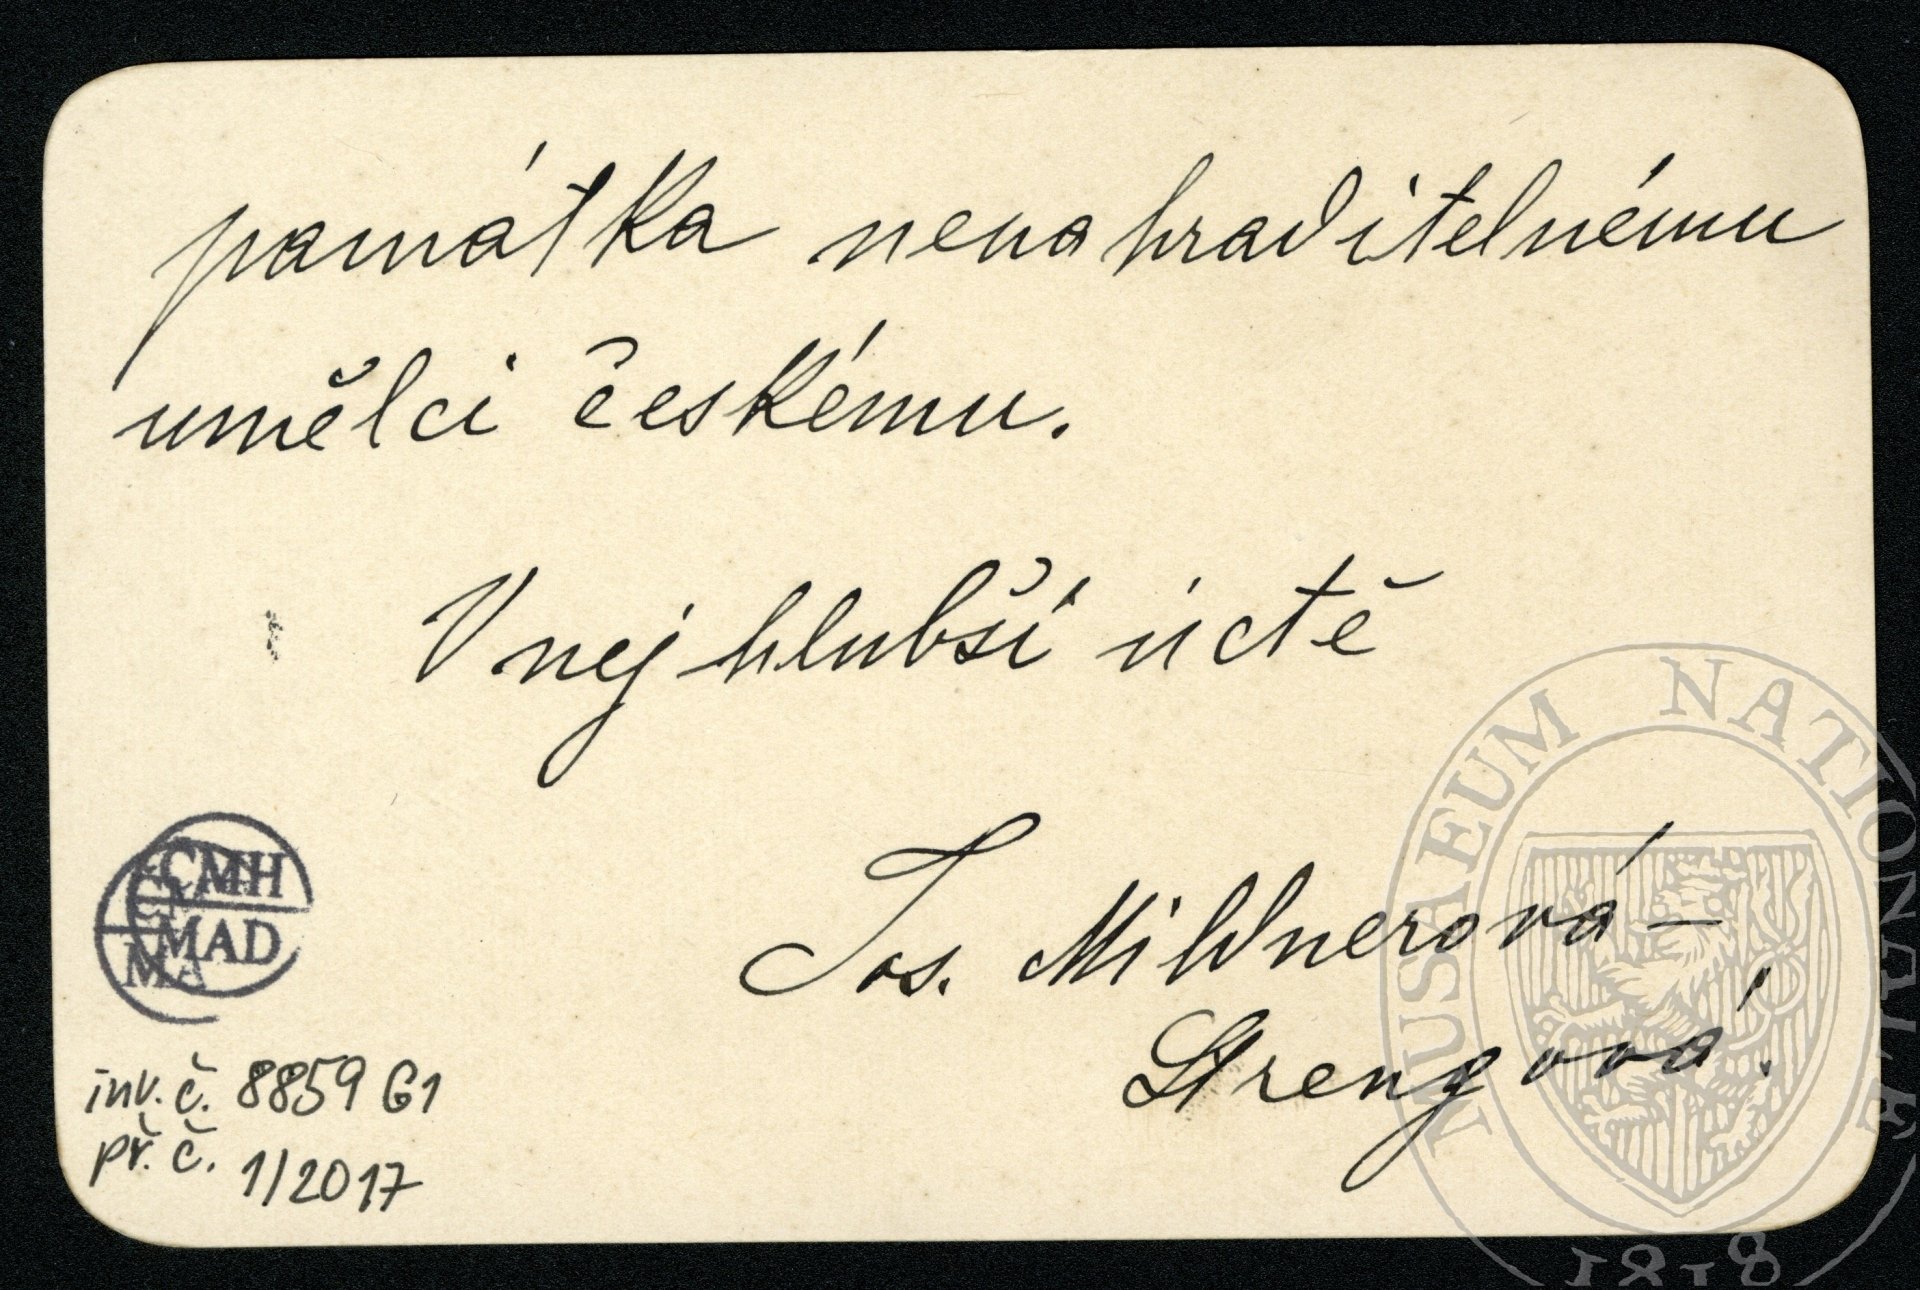 památka nenahraditelnému
umělci českému.
V nejhlubší úctě
Jos. Mildnerová-
Strengová.
CMH
MAD
MA
inv. č. 8859 G1
př. č. 1/2017
MUSAEUM NATIONALE
1818